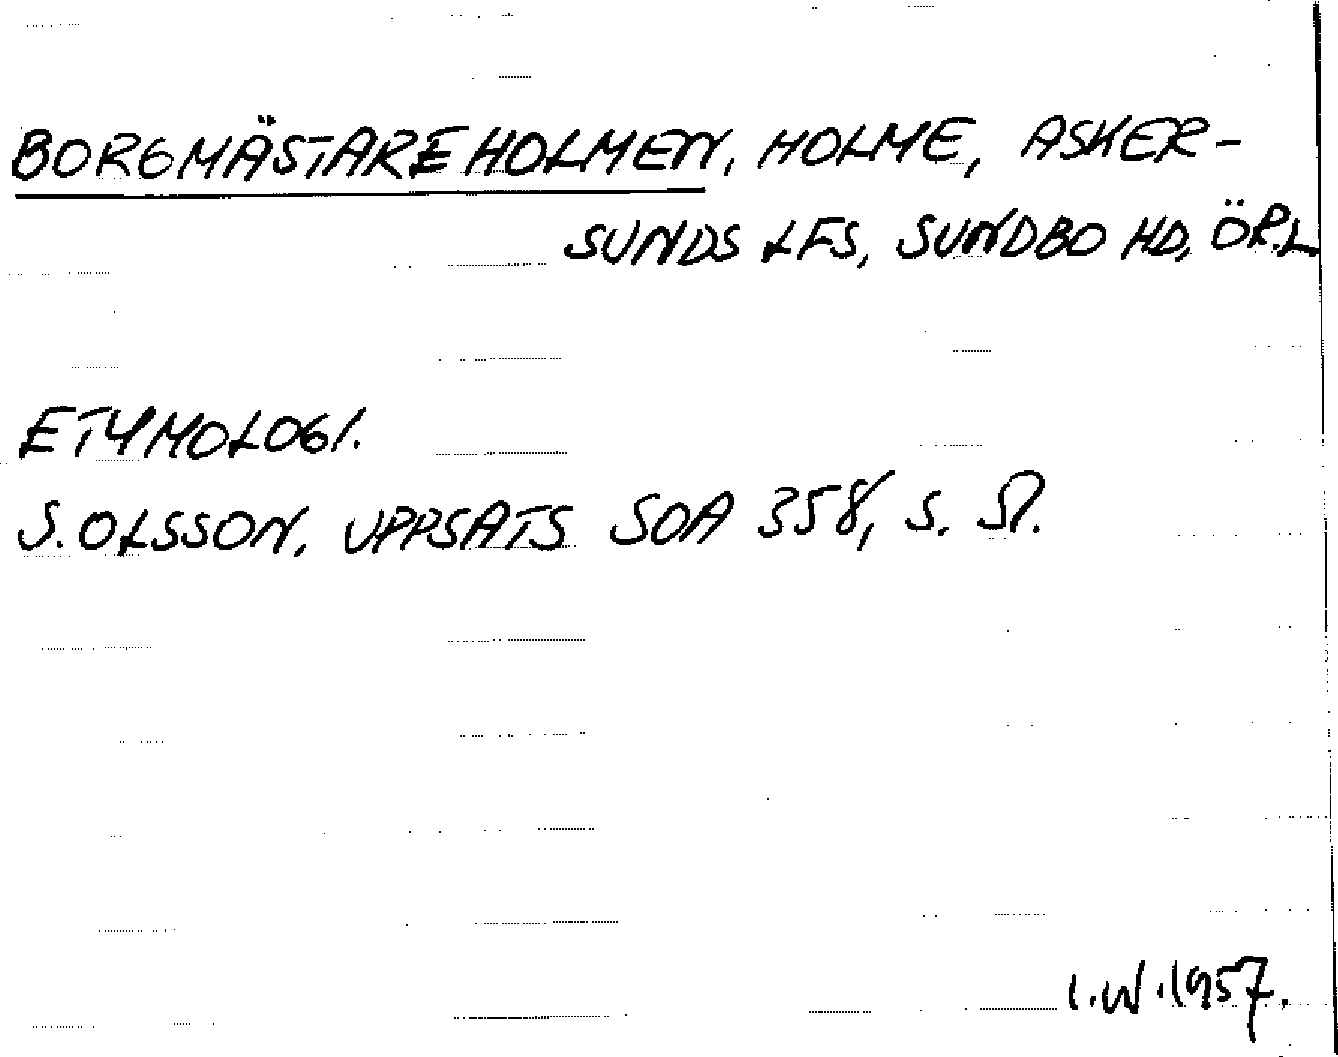 BORGMÄSTAREHOLMEN, HOLME, ASKER-
SUNDS LFS, SUNDBO HD, ÖR.L
ETYMOLOGI.
S. OLSSON, UPPSATS SOA 358, S.
I.W. 1957.